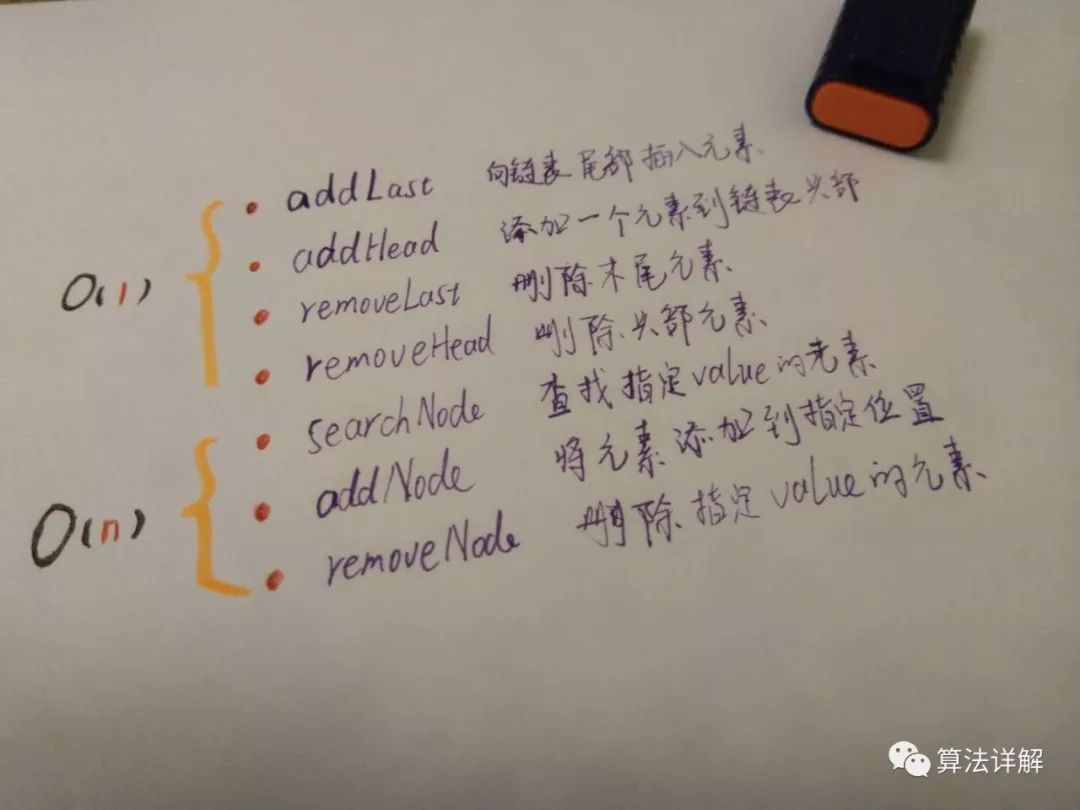 addLast 向链表尾部插入元素
addHead 添加一个元素到链表头部
O(1)
removeLast 删除末尾元素
removeHead 删除头部元素
searchNode 查找指定value的元素
addNode 将元素添加到指定位置
O(n)
removeNode 删除指定value的元素
算法详解